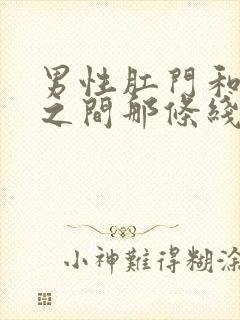 男性肛門和
之間那條綫
小神難得糊涂